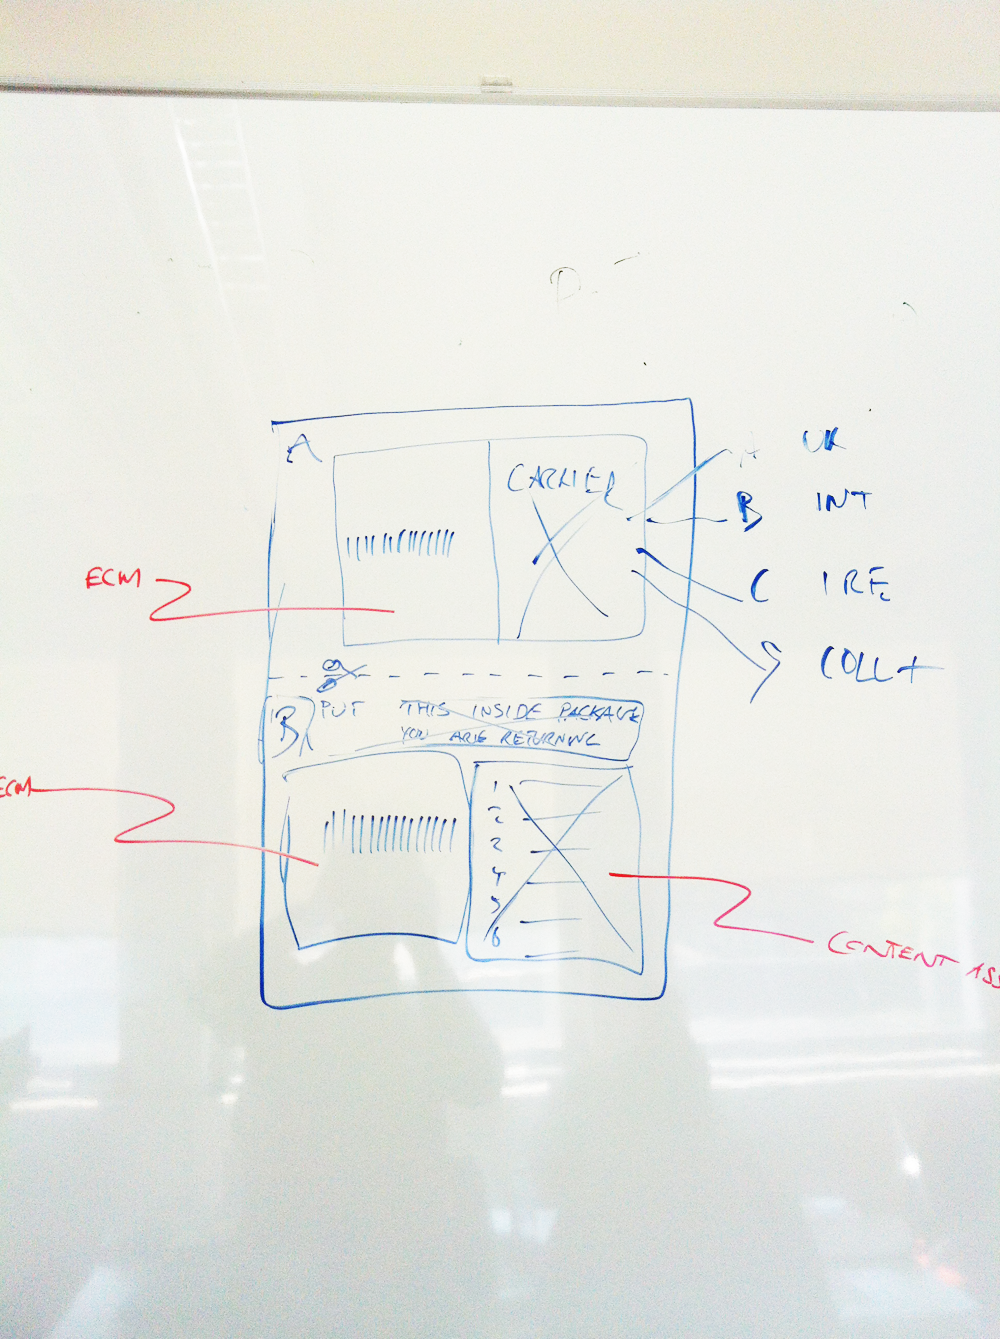 P
A
CARRIER
A UK
B INT
C IRE
COLL+
ECM
B
PUT THIS INSIDE PACKAGE
YOU ARE RETURNING
ECM
1
2
2
4
5
6
CONTENT ASS